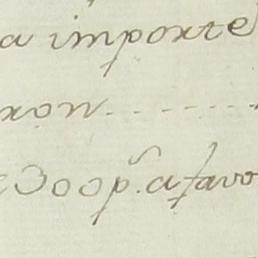 a importe
ron
300 p.^s a favo